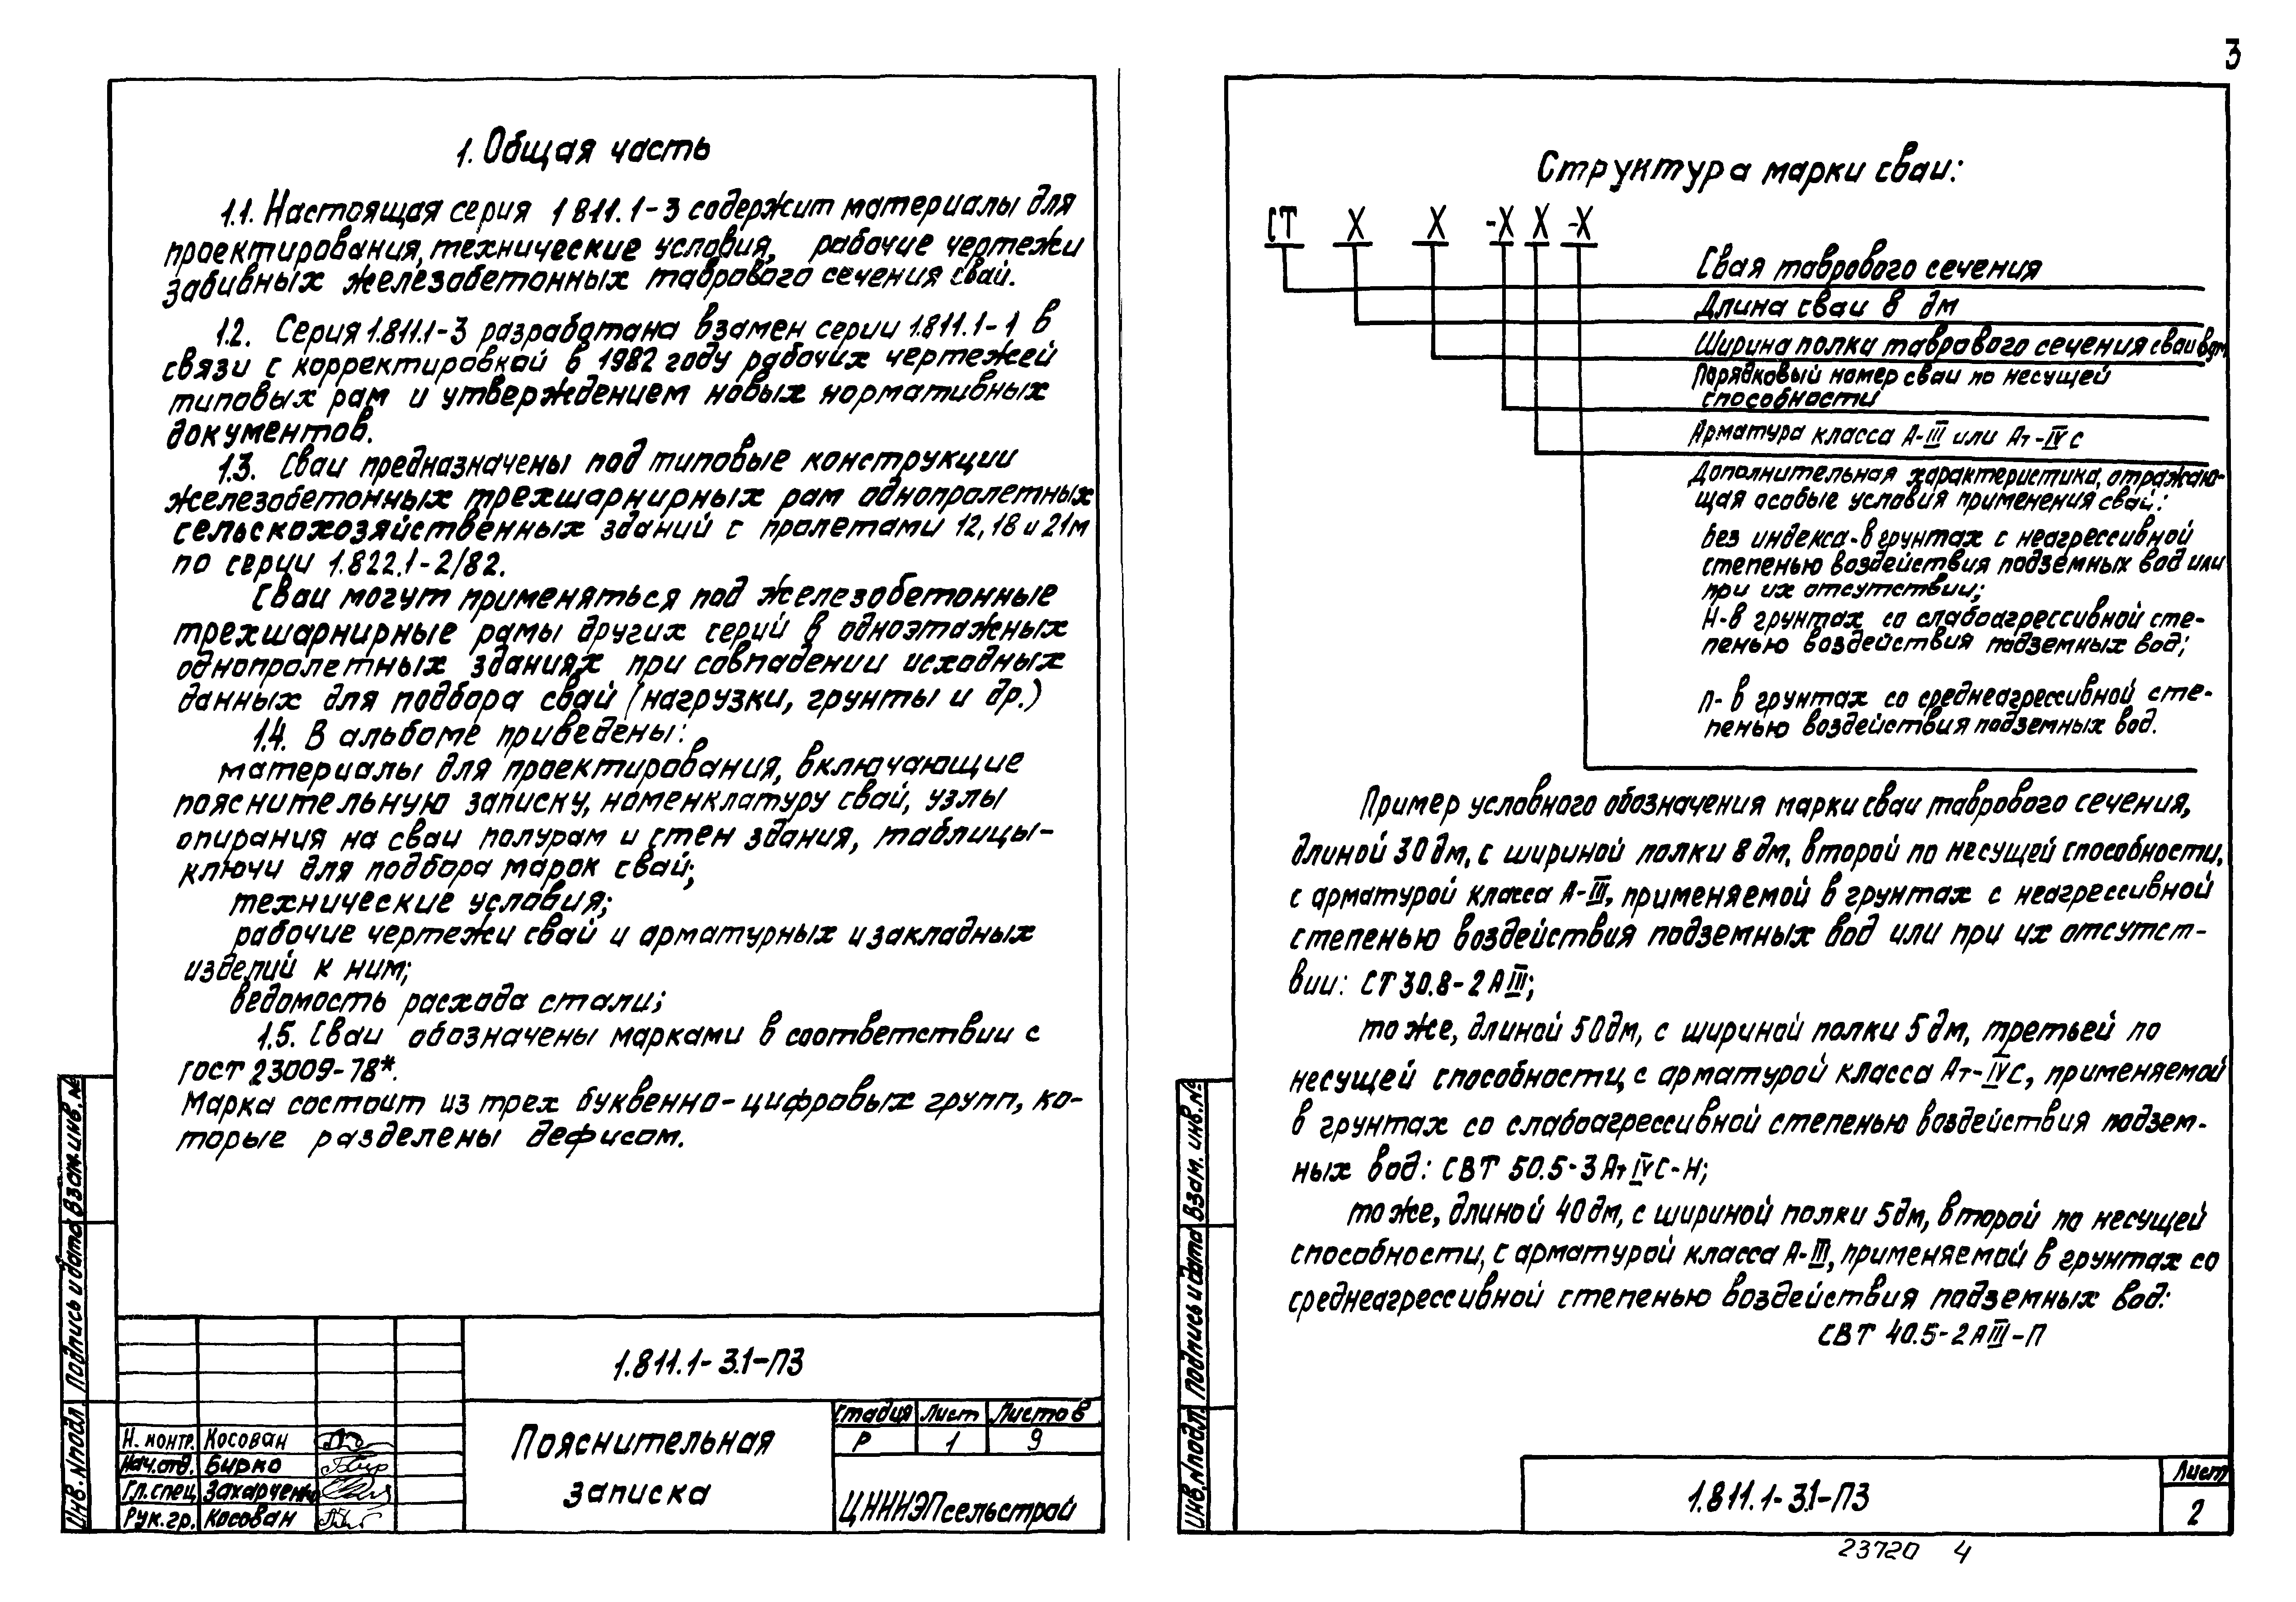 3
1. Общая часть
1.1. Настоящая серия 1 811.1-3 содержит материалы для
проектирования, технические условия, рабочие чертежи
забивных железобетонных таврового сечения свай.
1.2. Серия 1.811.1-3 разработана взамен серии 1.811.1-1 в
связи с корректировкой в 1982 году рабочих чертежей
типовых рам и утверждением новых нормативных
документов.
1.3. Сваи предназначены под типовые конструкции
железобетонных трехшарнирных рам однопролетных
сельскохозяйственных зданий с пролетами 12, 18 и 21м
по серии 1.822.1-2/82.
Сваи могут применяться под железобетонные
трехшарнирные рамы других серий в одноэтажных
однопролетных зданиях при совпадении исходных
данных для подбора свай (нагрузки, грунты и др.)
1.4. В альбоме приведены:
материалы для проектирования, включающие
пояснительную записку, номенклатуру свай, узлы
опирания на сваи полурам и стен здания, таблицы-
ключи для подбора марок свай;
технические условия;
рабочие чертежи свай и арматурных и закладных
изделий к ним;
ведомость расхода стали;
1.5. Сваи обозначены марками в соответствии с
ГОСТ 23009-78*.
Марка состоит из трех буквенно-цифровых групп, ко-
торые разделены дефисом.
Инв. N подл. Подпись и дата Взам. инв. №
1.811.1-3.1-ПЗ
Н. контр. Косован
Нач. отд. Бирко
Гл. спец. Захарченко
Рук. гр. Косован
Пояснительная
записка
Стадия Лист Листов
Р 1 9
ЦНИИЭПсельстрой
Структура марки сваи:
СТ Х Х -Х Х -Х
Свая таврового сечения
Длина сваи в дм
Ширина полки таврового сечения сваи в дм
Порядковый номер сваи по несущей
способности
Арматура класса А-III или Ат-IVС
Дополнительная характеристика, отражаю-
щая особые условия применения свай:
без индекса-в грунтах с неагрессивной
степенью воздействия подземных вод или
при их отсутствии;
Н-в грунтах со слабоагрессивной сте-
пенью воздействия подземных вод;
П-в грунтах со среднеагрессивной сте-
пенью воздействия подземных вод.
Пример условного обозначения марки сваи таврового сечения,
длиной 30дм, с шириной полки 8дм, второй по несущей способности,
с арматурой класса А-III, применяемой в грунтах с неагрессивной
степенью воздействия подземных вод или при их отсутст-
вии: СТ 30.8-2АIII;
то же, длиной 50дм, с шириной полки 5дм, третьей по
несущей способности, с арматурой класса Ат-IVС, применяемой
в грунтах со слабоагрессивной степенью воздействия подзем-
ных вод: СВТ 50.5-3АтIVС-Н;
то же, длиной 40дм, с шириной полки 5дм, второй по несущей
способности, с арматурой класса А-III, применяемой в грунтах со
среднеагрессивной степенью воздействия подземных вод:
СВТ 40.5-2АIII-П
Инв. N подл. Подпись и дата Взам. инв. №
1.811.1-3.1-ПЗ
Лист
2
23720 4